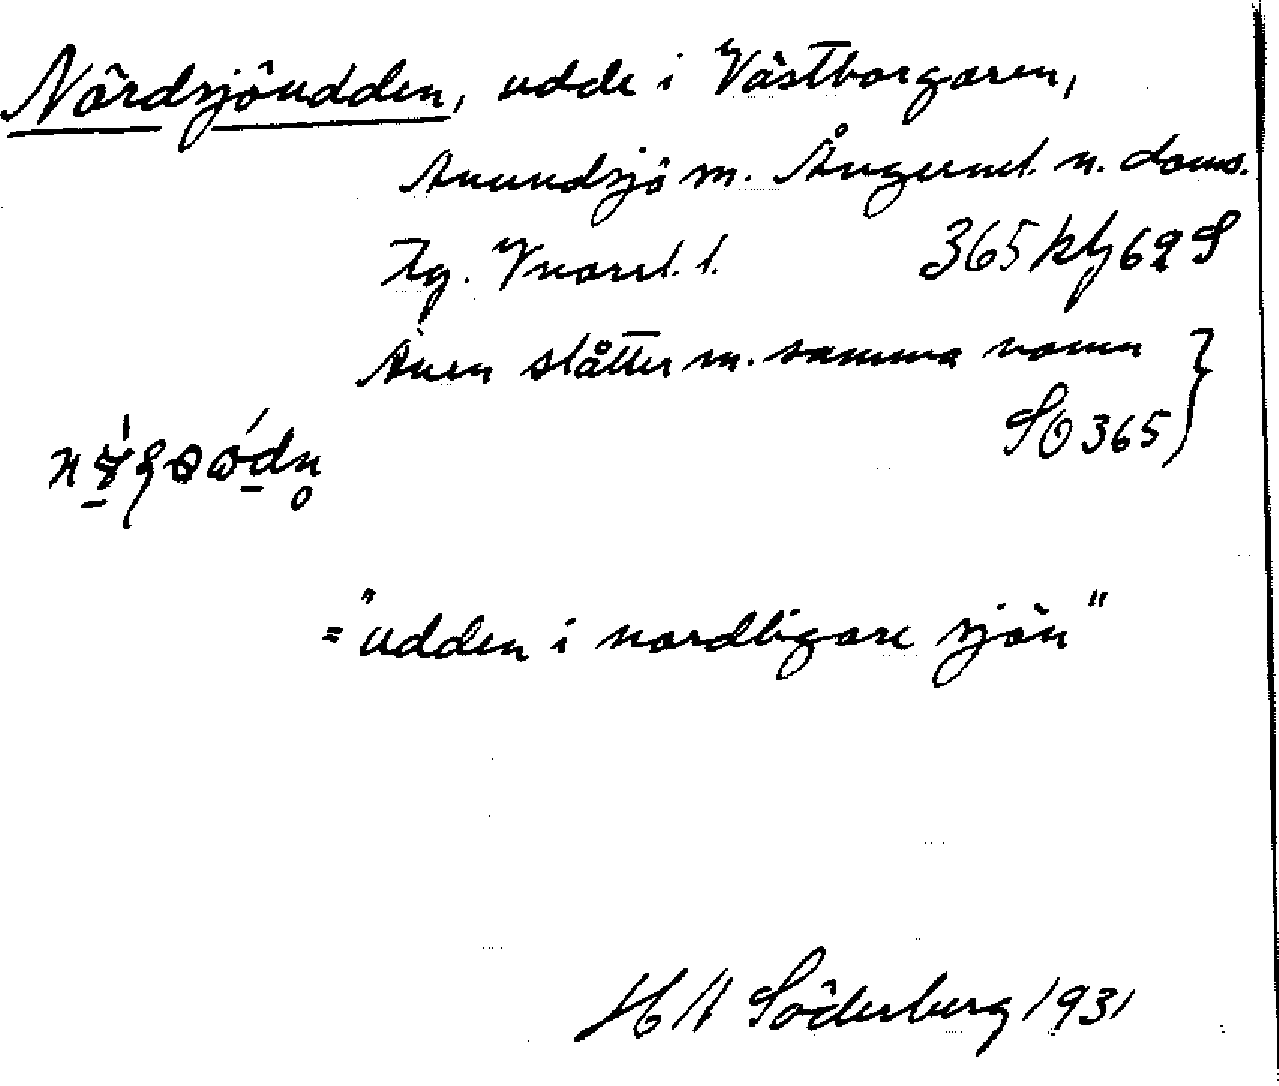 Nördsjöudden, udde i Västborgaren,
Anundsjö sn. Ångerml. n. doms.
Tg. Kvarul. l. 365 klj 62 S
Även slåtter m. samma namn
SO 365
= "udden i nordligare sjön"
H N Söderberg 1931